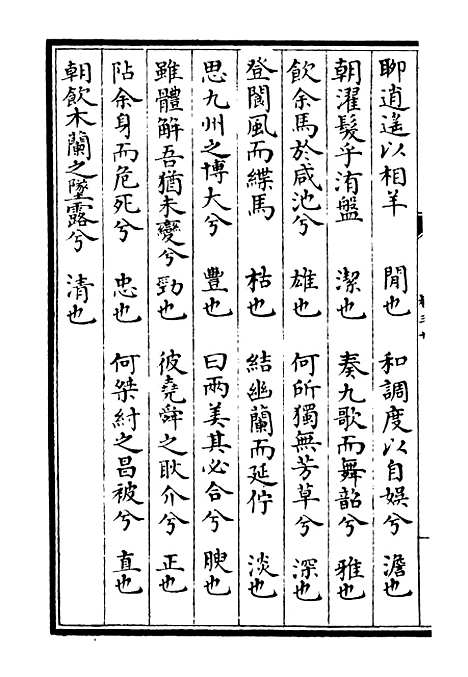 聊逍遙以相羊　閒也　和調度以自娛兮　澹也
朝濯髮乎洧盤　潔也　奏九歌而舞韶兮　雅也
飲余馬於咸池兮　雄也　何所獨無芳草兮　深也
登閬風而緤馬　枯也　結幽蘭而延佇　淡也
思九州之博大兮　豊也　曰兩美其必合兮　腴也
雖體解吾猶未變兮　勁也　彼堯舜之耿介兮　正也
阽余身而危死兮　忠也　何桀紂之昌被兮　直也
朝飲木蘭之墜露兮　清也